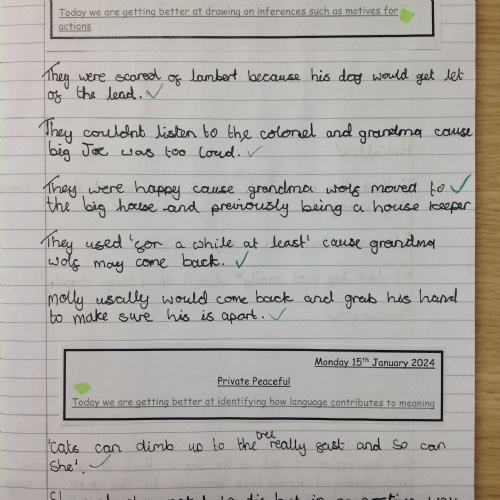 Today we are getting better at drawing on inferences such as motives for
actions
They were scared of lambert because his dog would get let
of the lead.
They couldnt listen to the colonel and grandma cause
big Joe was too loud.
They were happy cause grandma wolf moved to
the big house and previously being a house keeper
They used 'for a while at least' cause grandma
wolf may come back.
molly usally would come back and grab his hand
to make sure his is apart.
Monday 15th January 2024
Private Peaceful
Today we are getting better at identifying how language contributes to meaning
tree
'Cats can climb up to the really fast and so can
she'.